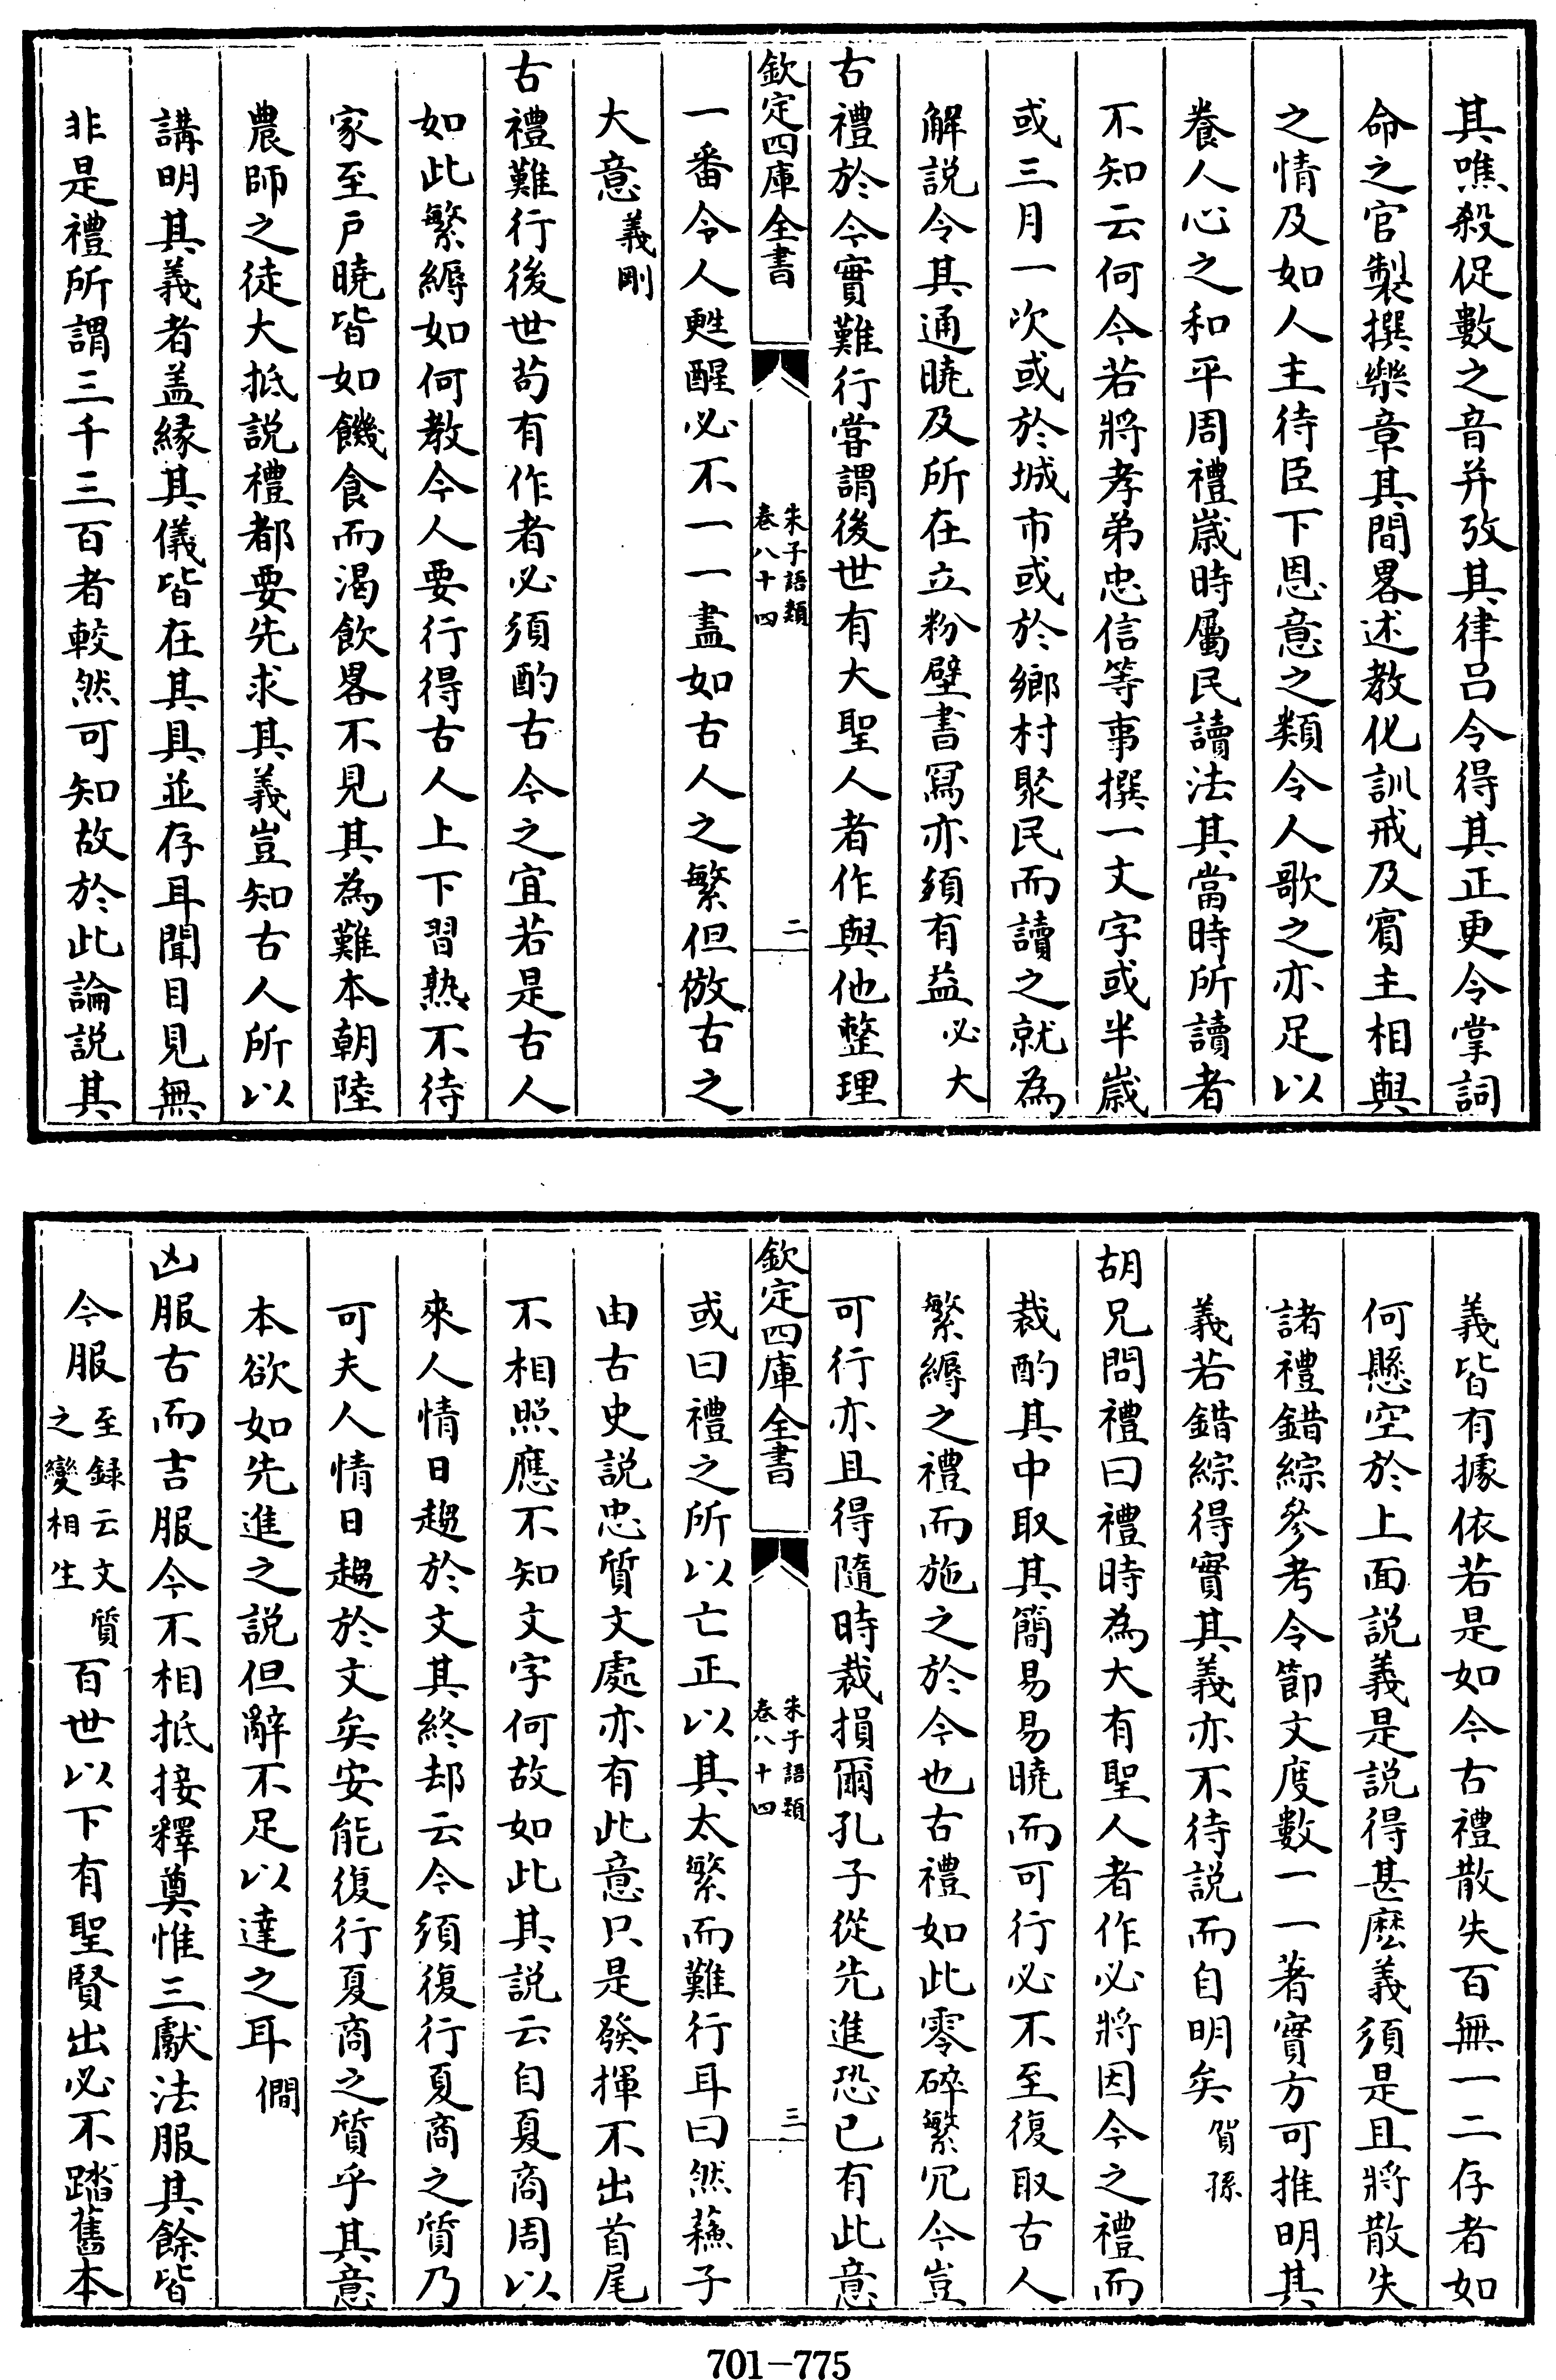 其噍殺促數之音并攷其律呂令得其正更令掌詞
命之官製撰樂章其間畧述教化訓戒及賓主相與
之情及如人主待臣下恩意之類令人歌之亦足以
養人心之和平周禮歲時屬民讀法其當時所讀者
不知云何今若將孝弟忠信等事撰一文字或半歲
或三月一次或於城市或於鄉村聚民而讀之就為
解説令其通曉及所在立粉壁書冩亦須有益必大
古禮於今實難行嘗謂後世有大聖人者作與他整理
欽定四庫全書
朱子語類
卷八十四
二
一番令人甦醒必不一一盡如古人之繁但倣古之
大意義剛
古禮難行後世苟有作者必須酌古今之宜若是古人
如此繁縟如何教今人要行得古人上下習熟不待
家至戶曉皆如饑食而渴飲畧不見其為難本朝陸
農師之徒大抵説禮都要先求其義豈知古人所以
講明其義者盖緣其儀皆在其具並存耳聞目見無
非是禮所謂三千三百者較然可知故於此論説其
義皆有據依若是如今古禮散失百無一二存者如
何懸空於上面説義是説得甚麽義須是且將散失
諸禮錯綜參考令節文度數一一著實方可推明其
義若錯綜得實其義亦不待説而自明矣賀孫
胡兄問禮曰禮時為大有聖人者作必將因今之禮而
裁酌其中取其簡易易曉而可行必不至復取古人
繁縟之禮而施之於今也古禮如此零碎繁冗今豈
可行亦且得隨時裁損爾孔子從先進恐已有此意
欽定四庫全書
朱子語類
卷八十四
三
或曰禮之所以亡正以其太繁而難行耳曰然蘓子
由古史説忠質文處亦有此意只是發揮不出首尾
不相照應不知文字何故如此其説云自夏商周以
來人情日趨於文其終却云今須復行夏商之質乃
可夫人情日趨於文矣安能復行夏商之質乎其意
本欲如先進之説但辭不足以達之耳僩
凶服古而吉服今不相抵接釋奠惟三獻法服其餘皆
今服至録云文質之變相生百世以下有聖賢出必不踏舊本
701-775